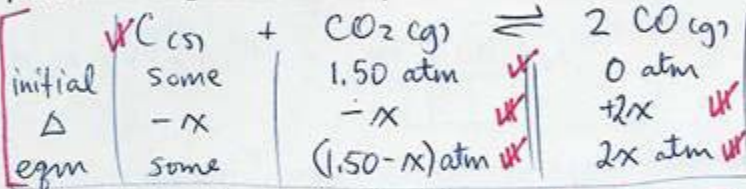 C(s) + CO2(g) ⇌ 2 CO(g)
initial some 1.50 atm 0 atm
Δ -x -x +2x
eqm some (1.50-x) atm 2x atm